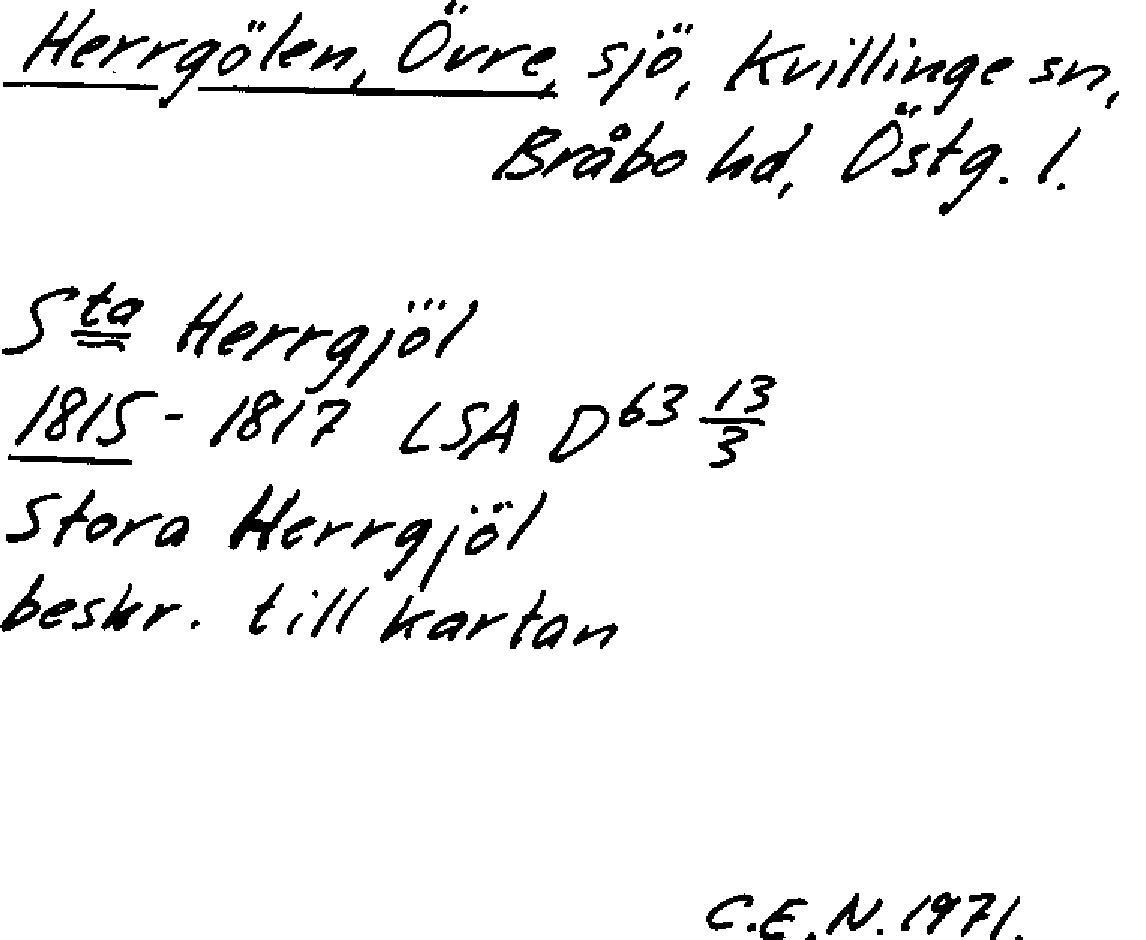 Herrgölen, Övre, sjö, Kvillinge sn,
Bråbo hd, Östg. l.
Sta Herrgjöl
1815 - 1817 LSA D63 13/3
Stora Herrgjöl
beskr. till kartan
C.E.N. 1971.